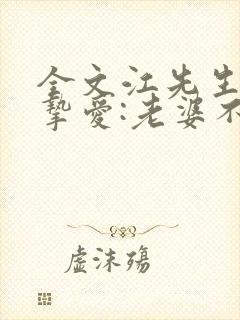 全文江先生
挚爱:老婆不
虚沫殇